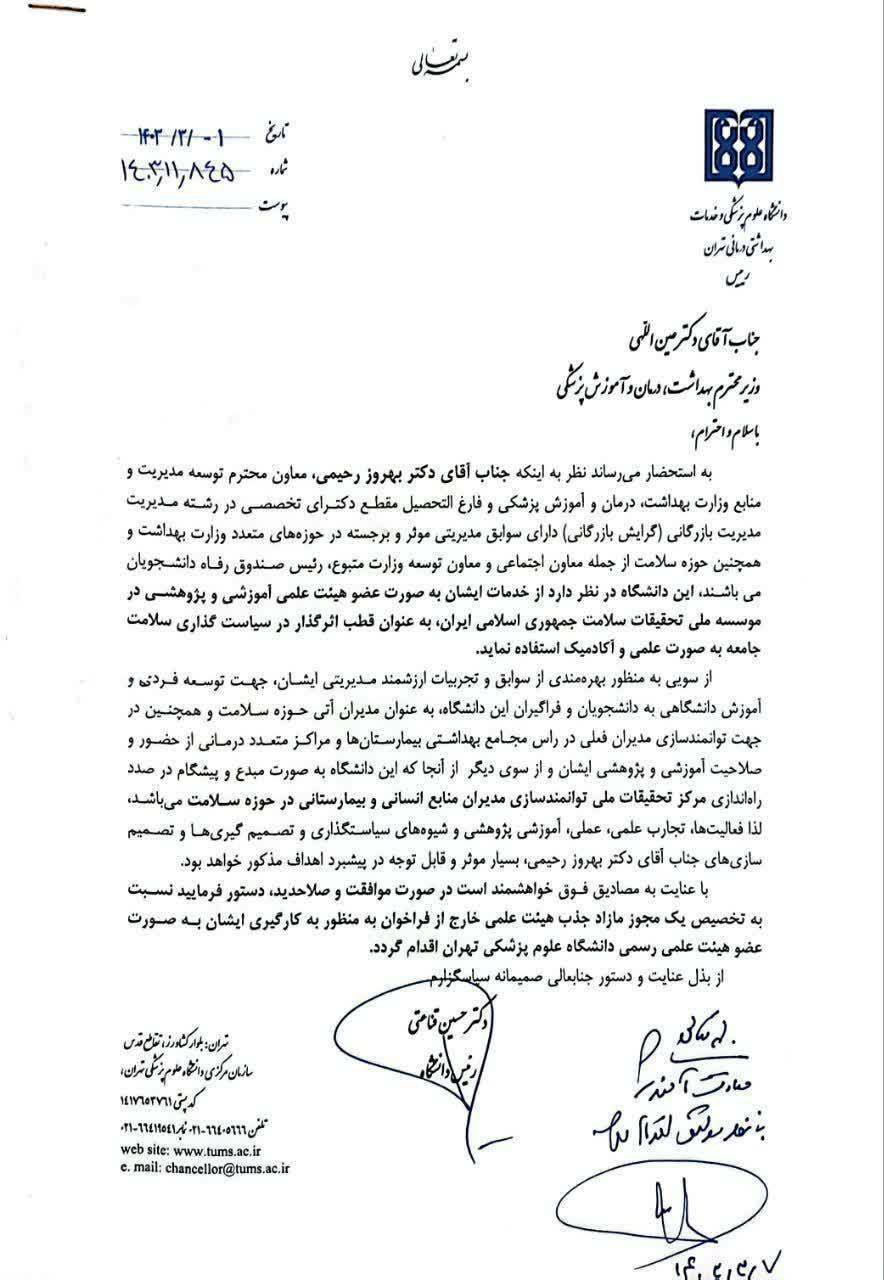 بسمه تعالی
تاریخ ۱۴۰۳/۳/۰۱
شماره ۱۴۰۳,۱۱,۸۴۵
پیوست
دانشگاه علوم پزشکی و خدمات
بهداشتی درمانی تهران
رییس
جناب آقای دکتر عین اللهی
وزیر محترم بهداشت، درمان و آموزش پزشکی
با سلام و احترام،
به استحضار می‌رساند نظر به اینکه جناب آقای دکتر بهروز رحیمی، معاون محترم توسعه مدیریت و
منابع وزارت بهداشت، درمان و آموزش پزشکی و فارغ التحصیل مقطع دکترای تخصصی در رشته مدیریت
مدیریت بازرگانی (گرایش بازرگانی) دارای سوابق مدیریتی موثر و برجسته در حوزه‌های متعدد وزارت بهداشت و
همچنین حوزه سلامت از جمله معاون اجتماعی و معاون توسعه وزارت متبوع، رئیس صندوق رفاه دانشجویان
می باشند، این دانشگاه در نظر دارد از خدمات ایشان به صورت عضو هیئت علمی آموزشی و پژوهشی در
موسسه ملی تحقیقات سلامت جمهوری اسلامی ایران، به عنوان قطب اثرگذار در سیاست گذاری سلامت
جامعه به صورت علمی و آکادمیک استفاده نماید.
از سویی به منظور بهره‌مندی از سوابق و تجربیات ارزشمند مدیریتی ایشان، جهت توسعه فردی و
آموزش دانشگاهی به دانشجویان و فراگیران این دانشگاه، به عنوان مدیران آتی حوزه سلامت و همچنین در
جهت توانمندسازی مدیران فعلی در راس مجامع بهداشتی بیمارستان‌ها و مراکز متعدد درمانی از حضور و
صلاحیت آموزشی و پژوهشی ایشان و از سوی دیگر از آنجا که این دانشگاه به صورت مبدع و پیشگام در صدد
راه‌اندازی مرکز تحقیقات ملی توانمندسازی مدیران منابع انسانی و بیمارستانی در حوزه سلامت می‌باشد،
لذا فعالیت‌ها، تجارب علمی، عملی، آموزشی پژوهشی و شیوه‌های سیاستگذاری و تصمیم گیری‌ها و تصمیم
سازی‌های جناب آقای دکتر بهروز رحیمی، بسیار موثر و قابل توجه در پیشبرد اهداف مذکور خواهد بود.
با عنایت به مصادیق فوق خواهشمند است در صورت موافقت و صلاحدید، دستور فرمایید نسبت
به تخصیص یک مجوز مازاد جذب هیئت علمی خارج از فراخوان به منظور به کارگیری ایشان به صورت
عضو هیئت علمی رسمی دانشگاه علوم پزشکی تهران اقدام گردد.
از بذل عنایت و دستور جنابعالی صمیمانه سپاسگزارم
دکتر حسین قناعتی
رئیس دانشگاه
تهران: بلوار کشاورز، تقاطع قدس
سازمان مرکزی دانشگاه علوم پزشکی تهران،
کد پستی ۱۴۱۷۶۵۳۷۶۱
تلفن ۶۶۴۰۵۶۶۶-۰۲۱ نمابر ۶۶۴۱۹۵۴۱-۰۲۱
web site: www.tums.ac.ir
e. mail: chancellor@tums.ac.ir